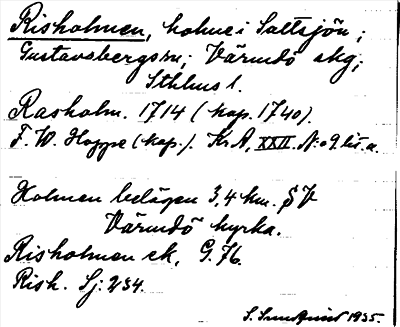 Risholmen, holme i Saltsjön;
Gustavsbergs sn; Värmdö skg;
Sthlms l.
Rasholm. 1714 (kop. 1740).
F. W. Hoppe (kop.). Kr. A, XXII. N:o 9 lit. a.
Holmen belägen 3,4 km. SV
Värmdö kyrka.
Risholmen ek. G. 76.
Rish. Sj: 234.
S. Sundquist 1935.